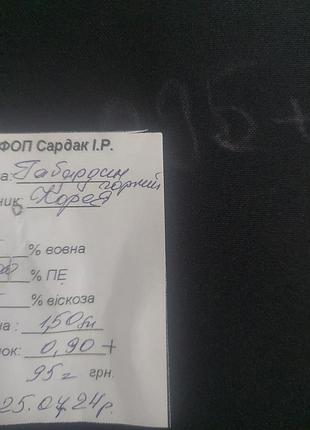 ФОП Сардак І.Р.
а: Габардин чорний
ник: Корея
% вовна
% ПЕ
% віскоза
на : 1,50
ок: 0,90 +
95= грн.
25.04.24р.
95+